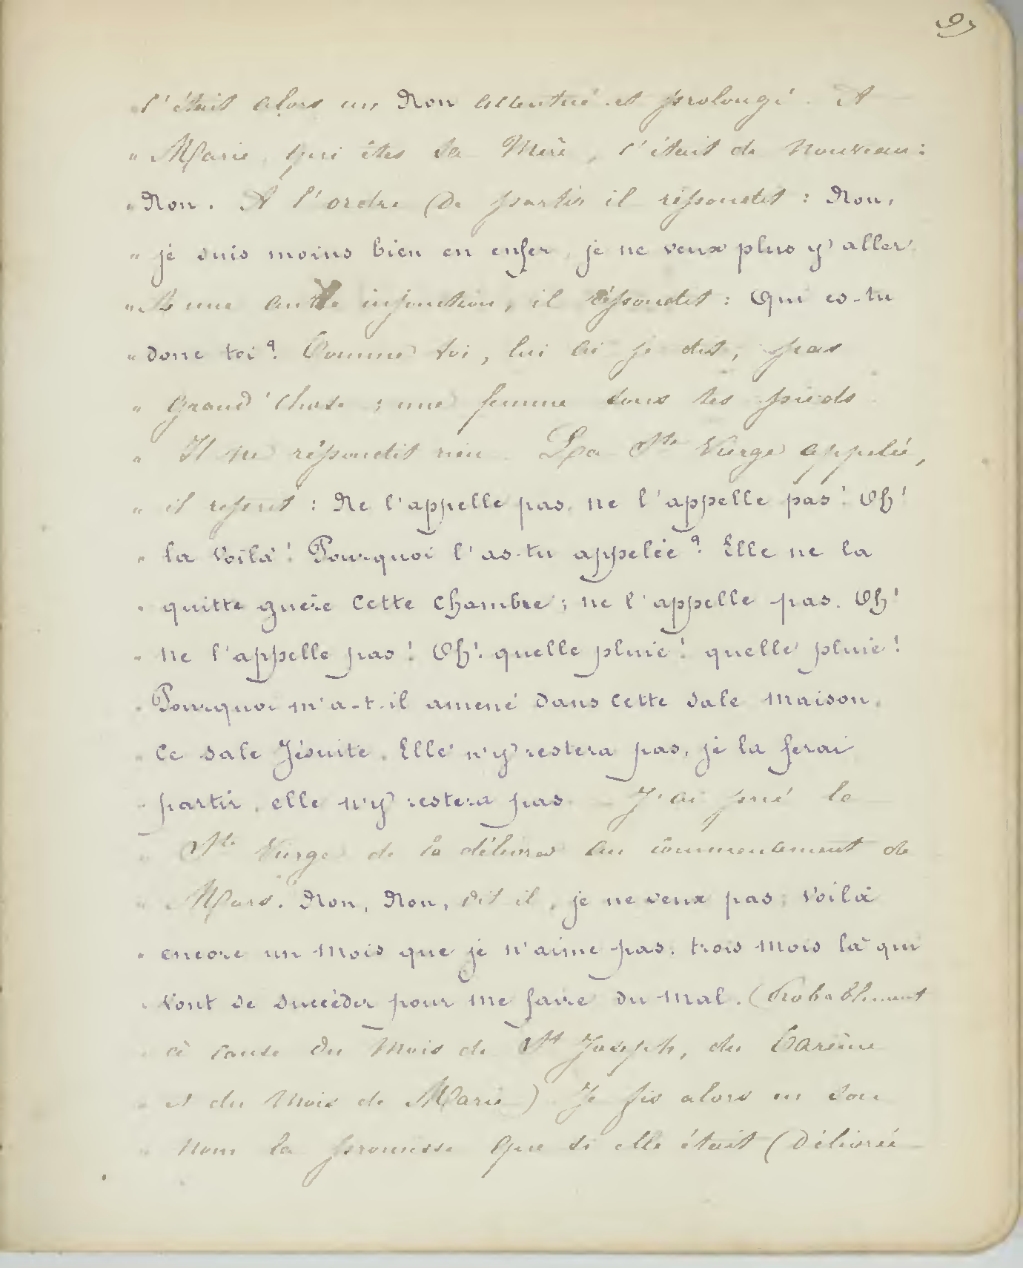 9
" c'était alors un Non accentué et prolongé. A
" Marie, qui êtes sa Mère, c'était de nouveau :
" Non. A l'ordre de partir il répondit : Non,
" je suis moins bien en enfer, je ne veux plus y aller.
" A une autre injonction, il répondit : Qui es-tu
" donc toi ? Comme toi, lui ai je dit, pas
" grand'chose ; une femme sous tes pieds.
" Il ne répondit rien. La Ste Vierge appelée,
" il reprit : Ne l'appelle pas, ne l'appelle pas ! Oh !
" la voilà ! Pourquoi l'as-tu appelée ? Elle ne la
" quitte guère cette chambre ; ne l'appelle pas. Oh !
" ne l'appelle pas ! Oh ! quelle pluie ! quelle pluie !
" Pourquoi m'a-t-il amené dans cette sale maison,
" ce sale Jésuite. Elle n'y restera pas, je la ferai
" partir, elle n'y restera pas. J'ai prié la
" Ste Vierge de la délivrer au commencement de
" Mars. Non, Non, dit il, je ne veux pas ; voilà
" encore un mois que je n'aime pas ; trois mois là qui
" vont se succéder pour me faire du mal. (Probablement
" à cause du mois de St Joseph, du Carême
" et du mois de Marie). Je fis alors en son
" nom la promesse que si elle était délivrée